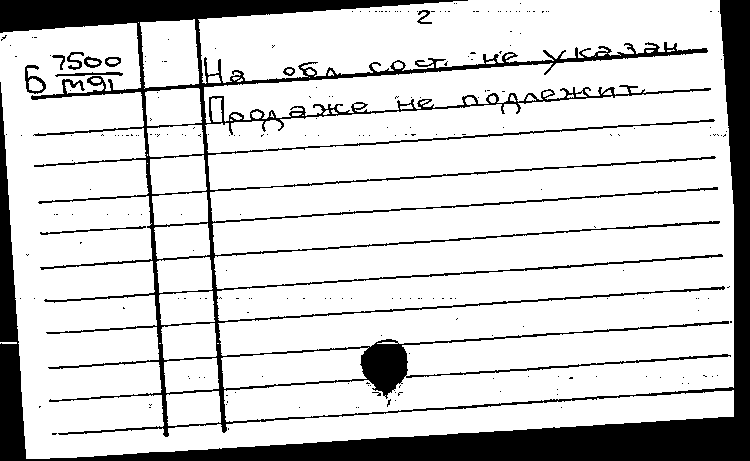 2
Б 7500 На обл. сост. не указан
М91
Продаже не подлежит.